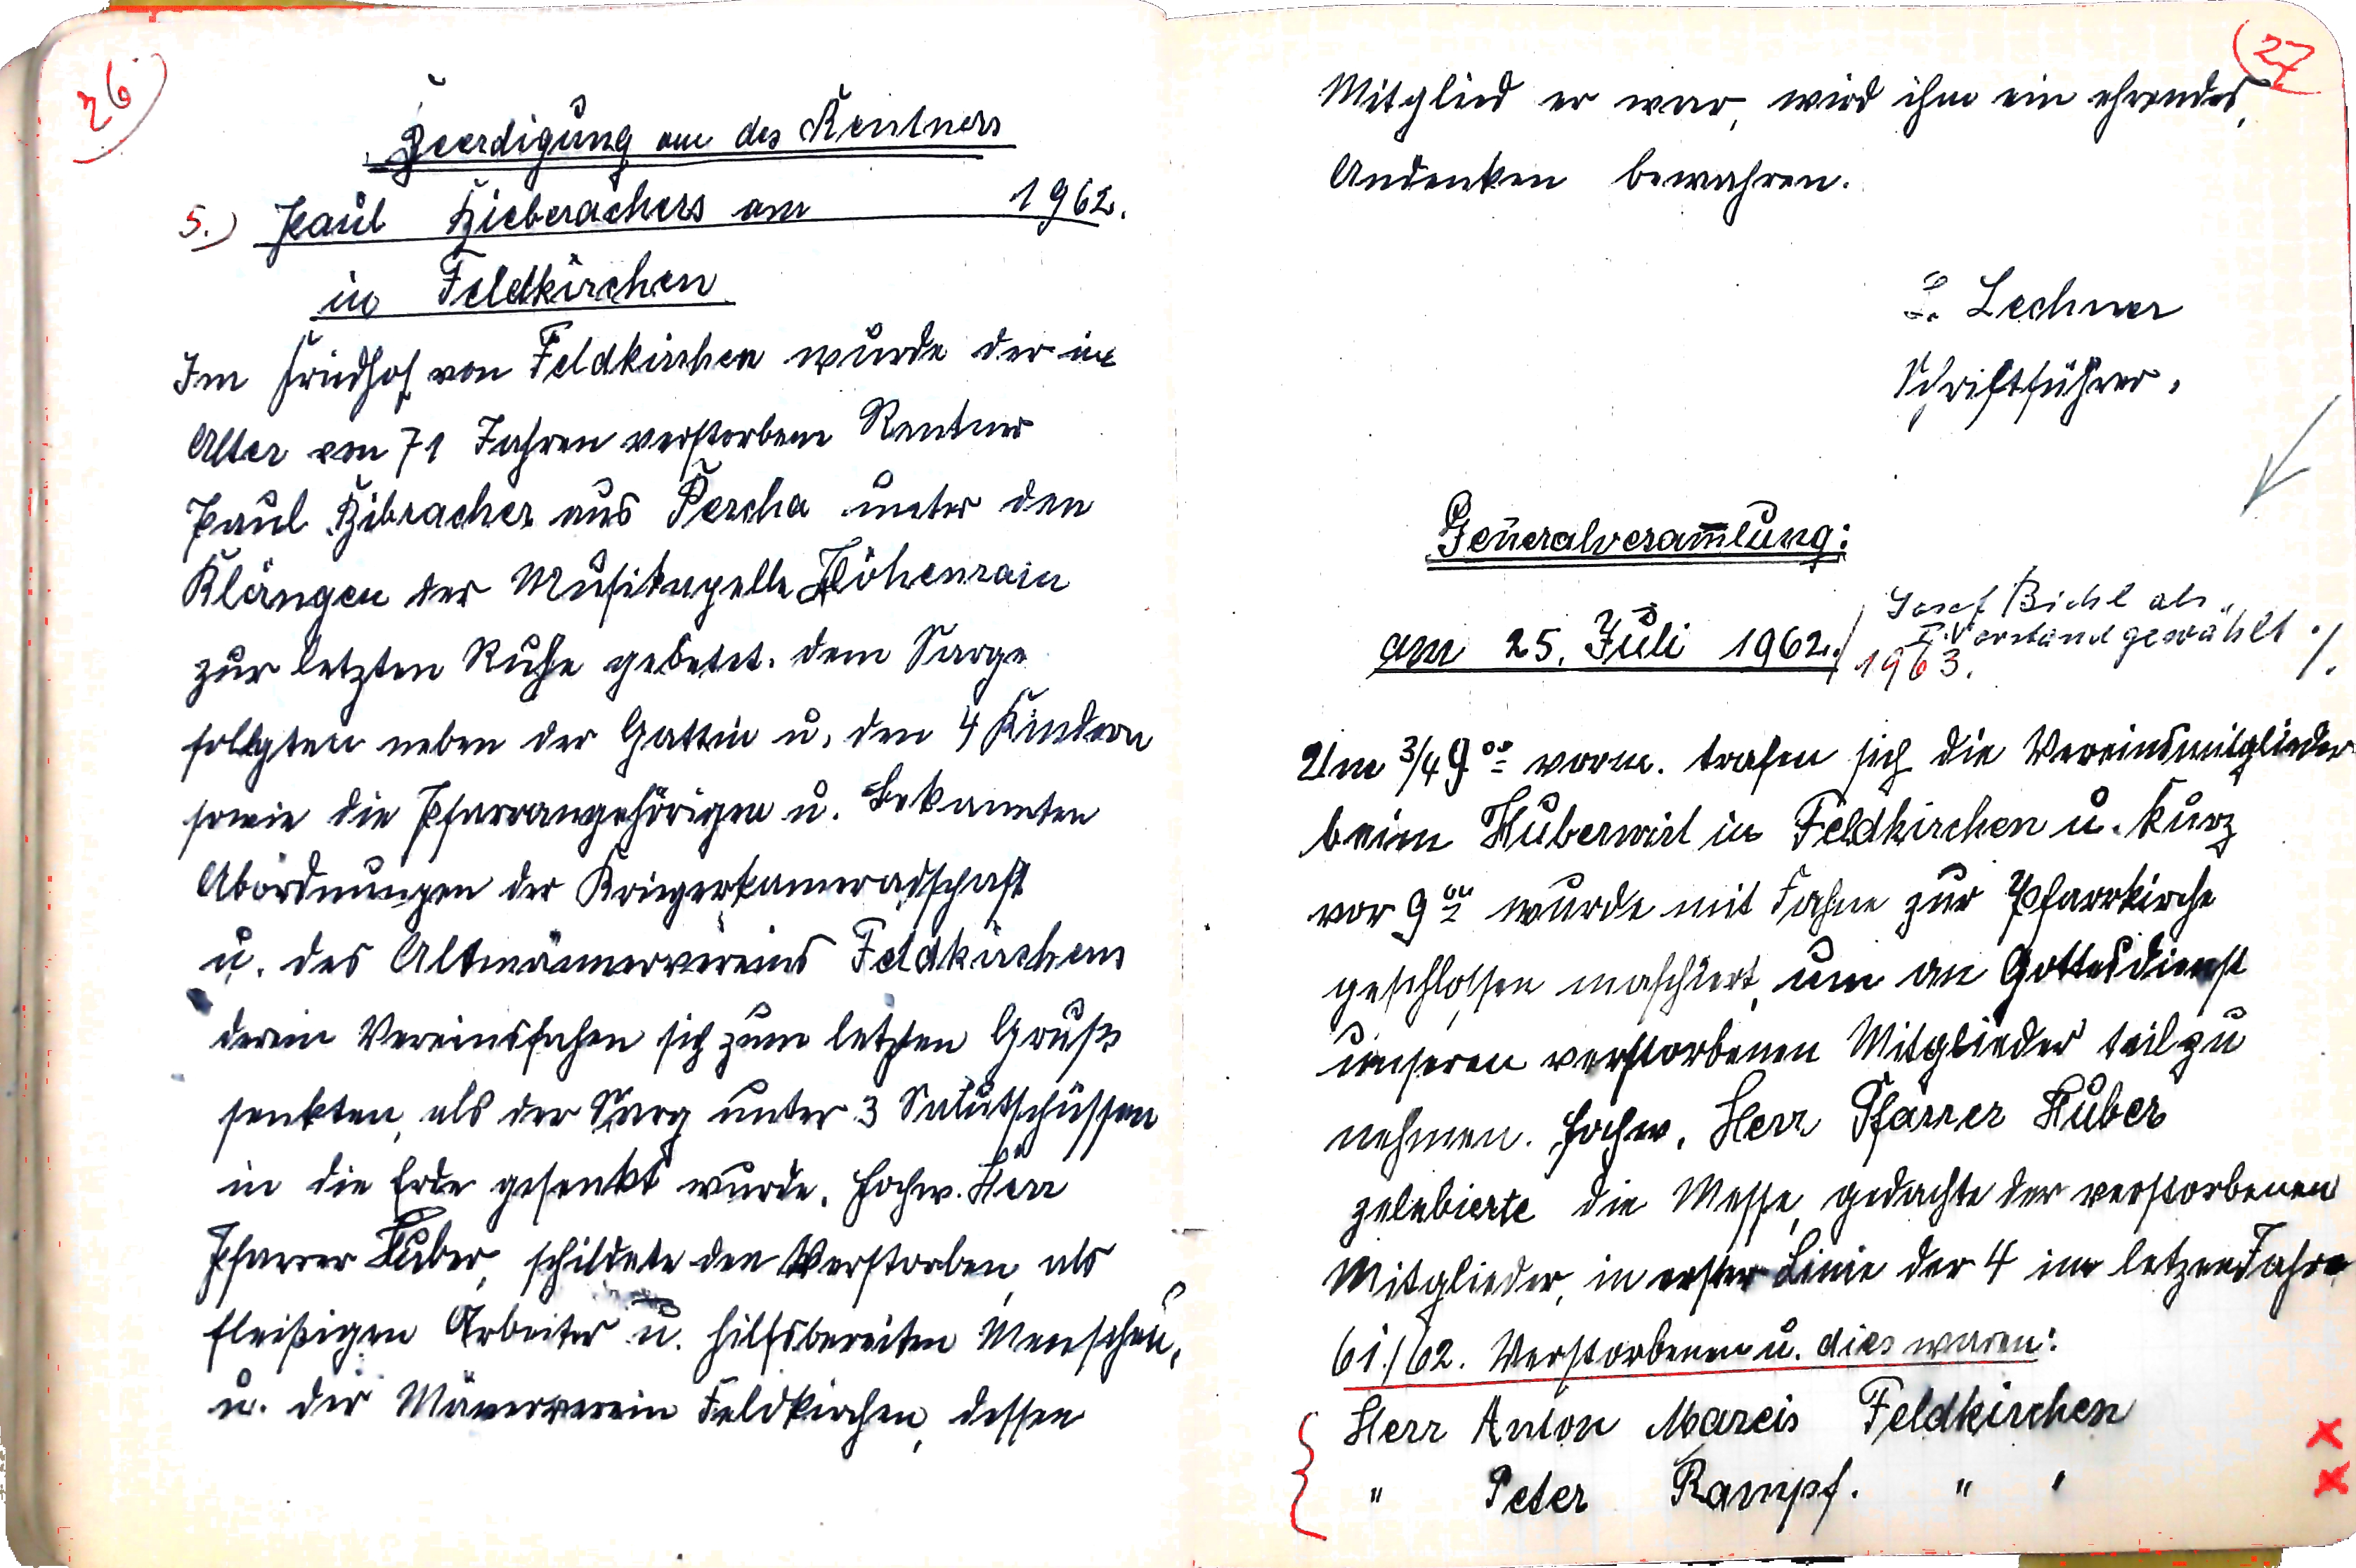 26)
Beerdigung am des Rentners
5.) Paul Bieberachers am 1962.
in Feldkirchen
Im Friedhof von Feldkirchen wurde der im
Alter von 71 Jahren verstorbene Rentner
Paul Bibracher aus Percha unter den
Klängen der Musikapelle Höhenrain
zur letzten Ruhe gebetet. dem Sarge
follgten neben der Gattin u. den 4 Kindern
sowie die Pfarrangehörigen u. Bekannten
Abordnungen der Kriegerkameradschaft
u. des Altmännervereins Feldkirchen
deren Vereinsfahen sich zum letzten Gruß
senkten, als der Sarg unter 3 Salutschüssen
in die Erde gesenkt wurde. Hochw. Herr
Pfarrer Huber, schildete den Verstorben, als
fleißigen Arbeiter u. hilfsbereiten Menschen,
u. der Mänerverein Feldkirchen, dessen
(27
Mitglied er war, wird ihm ein ehrendes,
Andenken bewahren.
L. Lechner
Schriftführer.
Generalversam̅lung:
am 25. Juli 1962. / Josef Bichl als
I. Vorstand gewählt ./.
1963.
Um 3/4 9 00 vorm. trafen sich die Vereinsmitglieder
beim Huberwirt in Feldkirchen u. kurz
vor 9 00 wurde mit Fahne zur Pfarrkirche
geschlossen maschiert, um an Gottesdienst
unseren verstorbenen Mitglieder teil zu
nehmen. Hochw. Herr Pfarrer Huber
zelebierte die Messe, gedachte der verstorbenen
Mitglieder, in erster Linie der 4 im letzen Jahre
61./62. Verstorbenen u. dies waren:
Herr Anton Mareis Feldkirchen x
" Peter Rampf. " " x